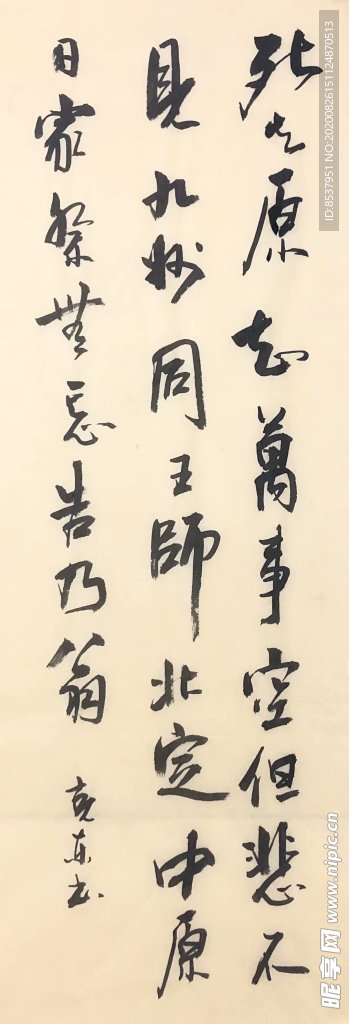 死去原知萬事空但悲不
見九州同王師北定中原
日家祭無忘告乃翁
克東书
ID:8537951 NO:20200826151124870513
昵享网 www.nipic.cn